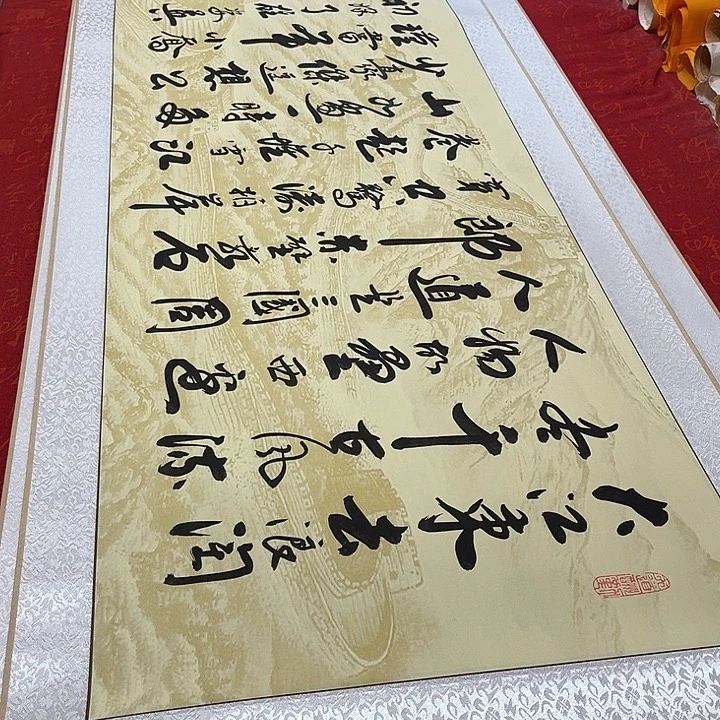 大江東去浪淘
盡千古風流
人物故壘西邊
人道是三國周
郎赤壁亂石
穿空驚濤拍岸
卷起千堆雪江
山如畫一時多
少豪傑遙想公
瑾當年小喬
初嫁了雄姿英